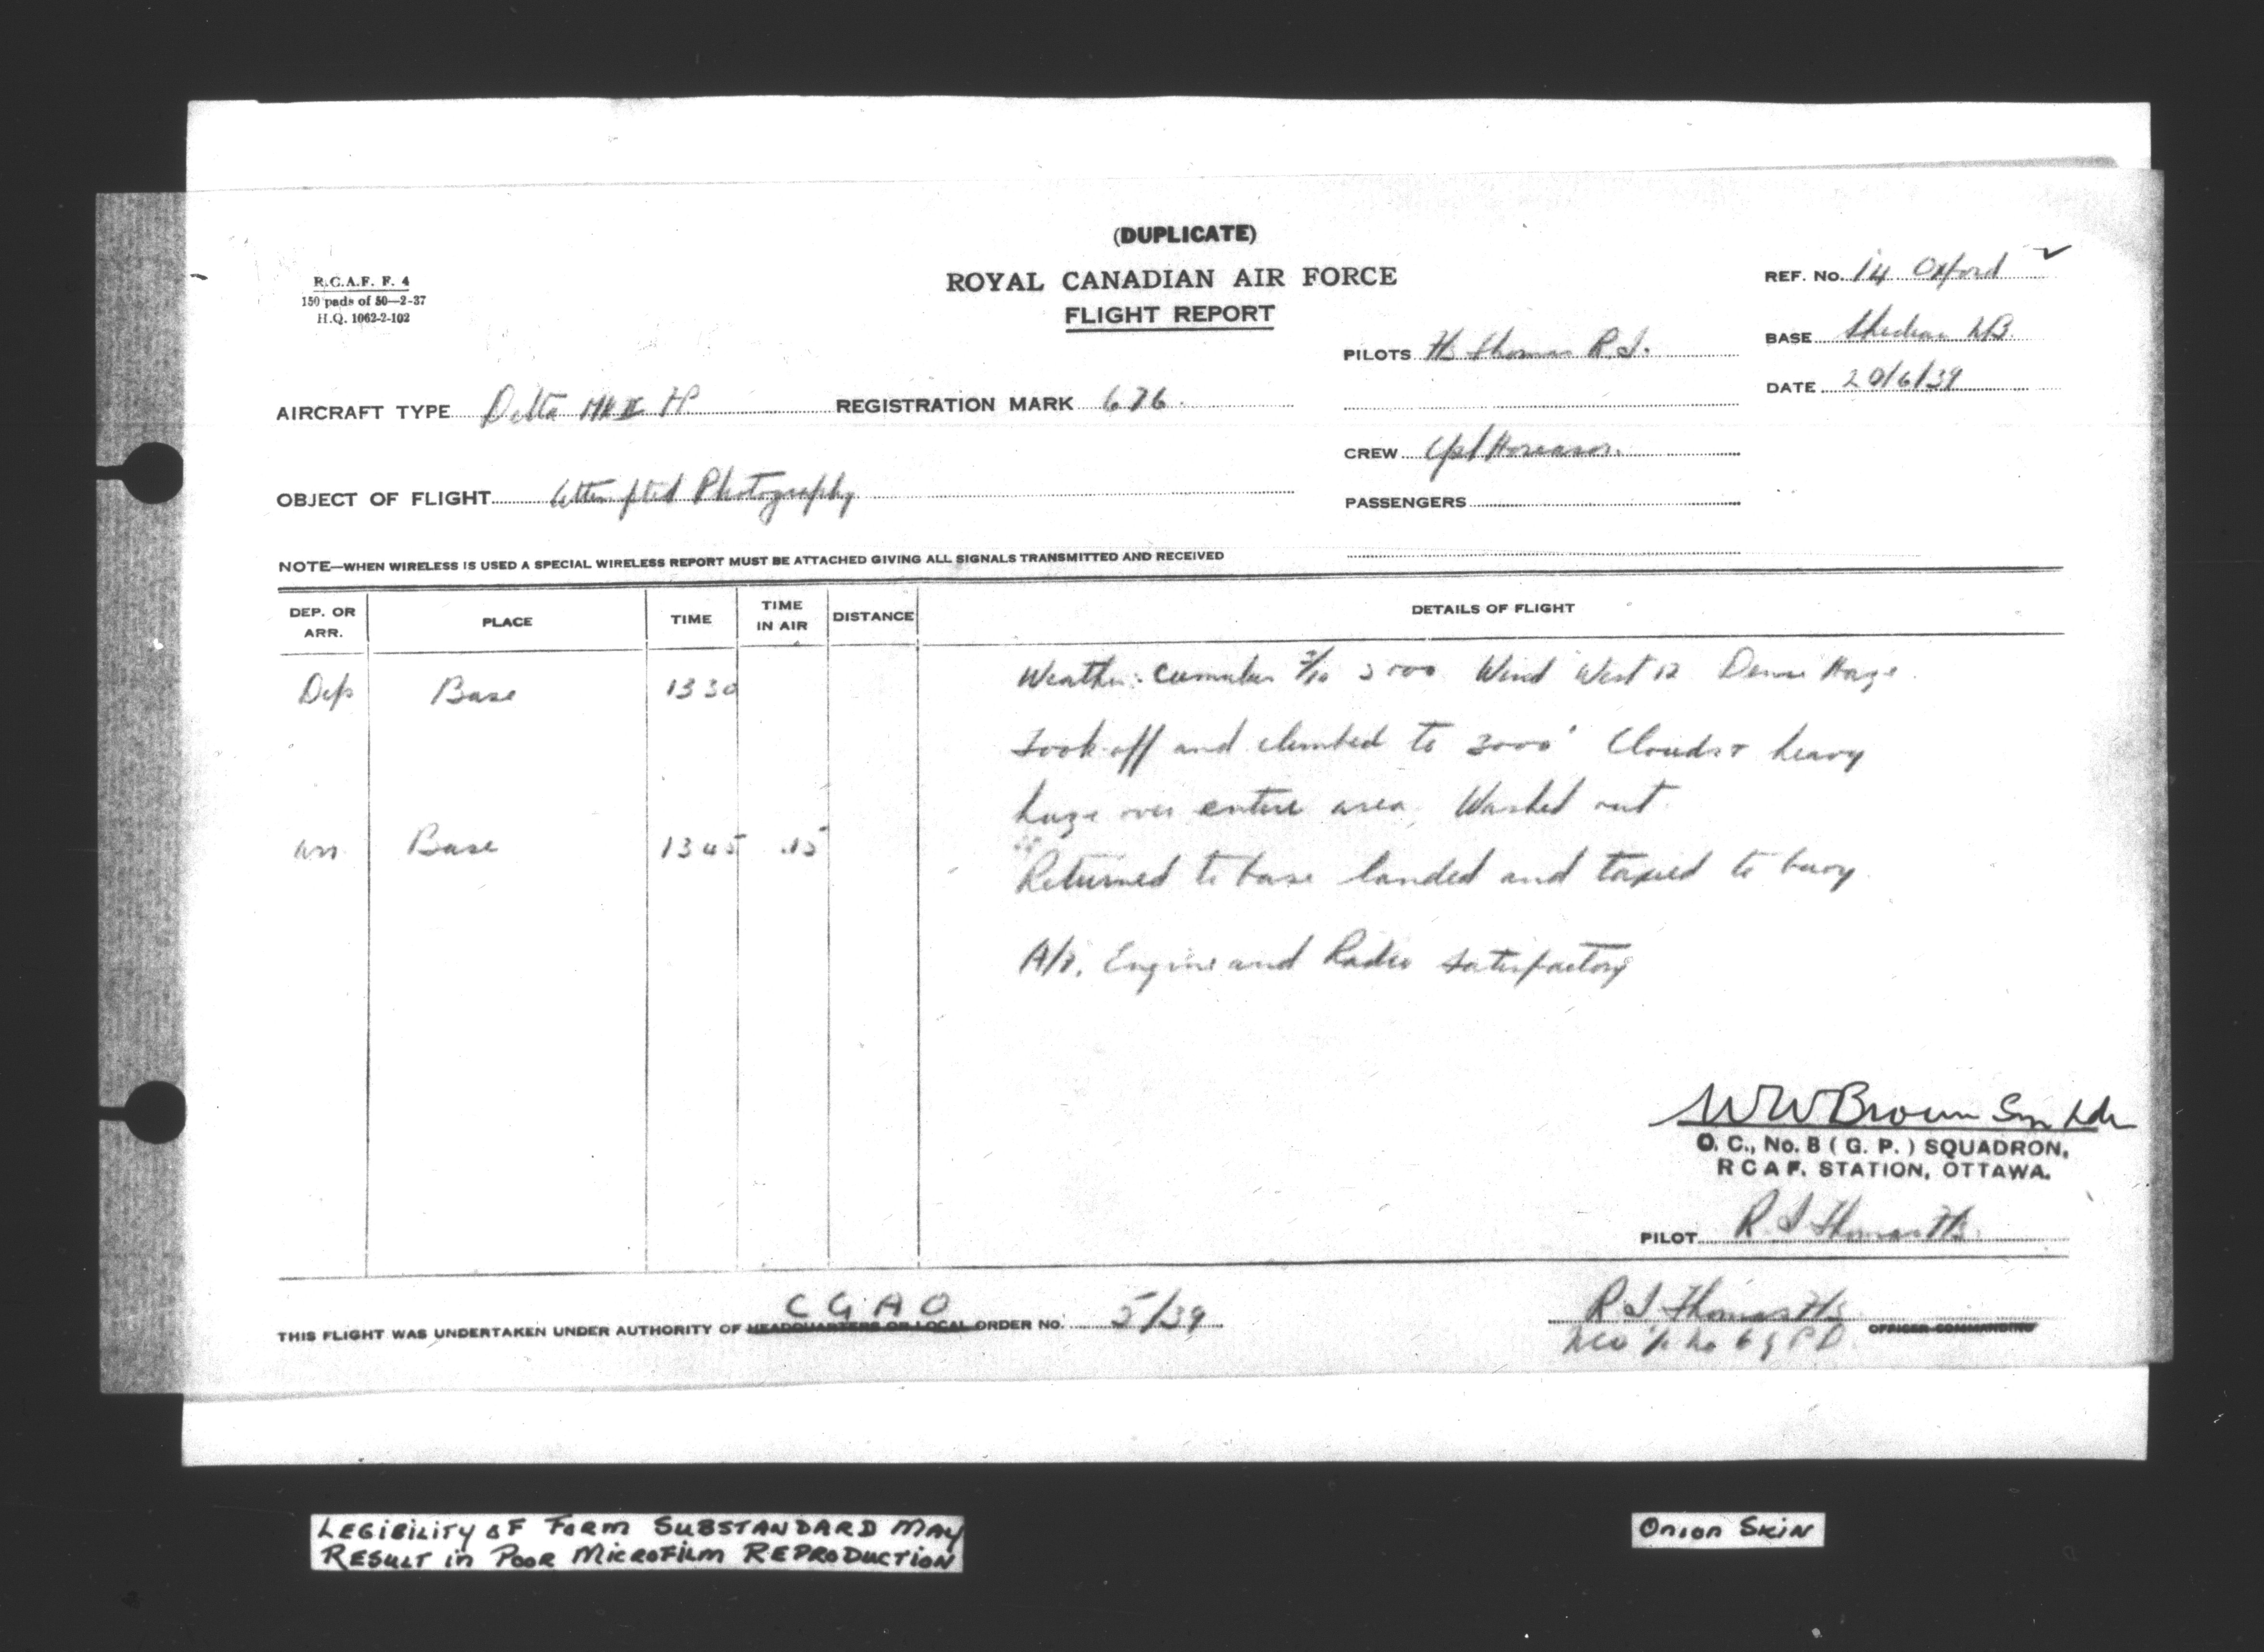 (DUPLICATE)
R.C.A.F. F. 4
150 pads of 50—2-37
H.Q. 1062-2-102
ROYAL CANADIAN AIR FORCE
FLIGHT REPORT
REF. No. 14 Oxford
BASE Shediac NB.
DATE 20/6/39
PILOTS Thomas R.I.
AIRCRAFT TYPE Delta MK II FP
REGISTRATION MARK 676.
CREW Cpl
OBJECT OF FLIGHT Attempted Photography
PASSENGERS
NOTE—WHEN WIRELESS IS USED A SPECIAL WIRELESS REPORT MUST BE ATTACHED GIVING ALL SIGNALS TRANSMITTED AND RECEIVED
DEP. OR ARR. PLACE TIME TIME IN AIR DISTANCE DETAILS OF FLIGHT
Dep Base 1330 Weather: Cumulus 3/10 3000 Wind West 12 Dense Haze.
Took off and climbed to 3000' Clouds & heavy
haze over entire area. Washed out.
Arr. Base 1345 .15
Returned to base landed and taxied to buoy.
A/C, Engine and Radio satisfactory
WW Brown Sqn Ldr
O. C., No. 8 ( G. P. ) SQUADRON,
R C A F. STATION, OTTAWA.
PILOT R I Thomas
C G A O
THIS FLIGHT WAS UNDERTAKEN UNDER AUTHORITY OF HEADQUARTERS OR LOCAL ORDER NO. 5/39
R I Thomas
OFFICER COMMANDING
LEGIBILITY OF FORM SUBSTANDARD MAY
RESULT IN POOR MICROFILM REPRODUCTION
ONION SKIN